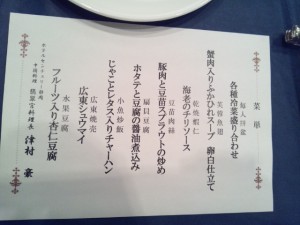 菜単
每人拼盆
各種冷菜盛り合わせ
芙蓉魚翅
蟹肉入りふかひれスープ 卵白仕立て
乾焼蝦仁
海老のチリソース
豆苗肉絲
豚肉と豆苗スプラウトの炒め
扇貝豆腐
ホタテと豆腐の醤油煮込み
小魚炒飯
じゃことレタス入りチャーハン
広東焼売
広東シュウマイ
水果豆腐
フルーツ入り杏仁豆腐
料理長
津村 豪